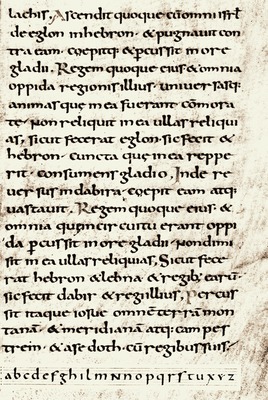 lachis. Ascendit quoque cũ omni isrl
de eglon in hebron · & pugnavit con
tra eam · coepitq; & percussit in ore
gladii. Regem quoque eius & omnia
oppida regionis illius · universasq;
animas que in ea fuerant cõmora
te · Non reliquit in ea ullas reliqui
as, sicut fecerat eglon · sic fecit &
hebron · cuncta que in ea reppe
rit · consumens gladio. Inde re
versus in dabira · coepit eam atq;
vastavit. Regem quoque eius · &
omnia que in circuitu erant oppi
da percussit in ore gladii · Non dimi
sit in ea ullas reliquias, Sicut fece
rat hebron & lebna · & regib; earũ ·
sic fecit dabir & regi illius, Percus
sit itaque iosue omnẽ terrã mon
tanã · & meridianã atq; campes
trem · & asedoth · cũ regibus suis
a b c d e f g h i l m N n o p q r s t u x y z